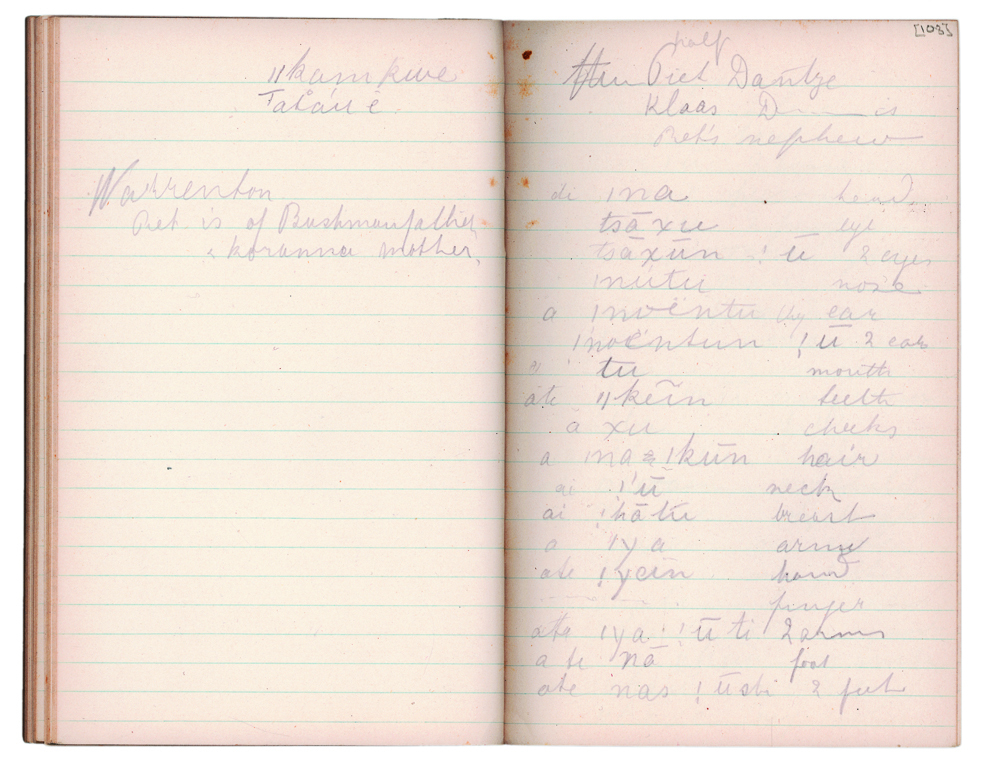 ǁkam kwe
Tatáu é
Warrenton
Piet is of Bushman father
& Koranna mother,
[103]
half
Piet Dantze
Klaas D—— is
Piet's nephew
di ına head
tsāxu eye
tsāxūn !ū 2 eyes
ınutu nose
a ınwēntu thy ear
ınoëntun !ū 2 ears
tu mouth
ate ǁkeīn teeth
ă xu cheeks
a ına ıkūn hair
ai !ū neck
ai !hātu breast
a ıya arm
ate !yein hand
finger
ate ıya !ū ti 2 arms
a te nā foot
ate nas !ūdi 2 feet